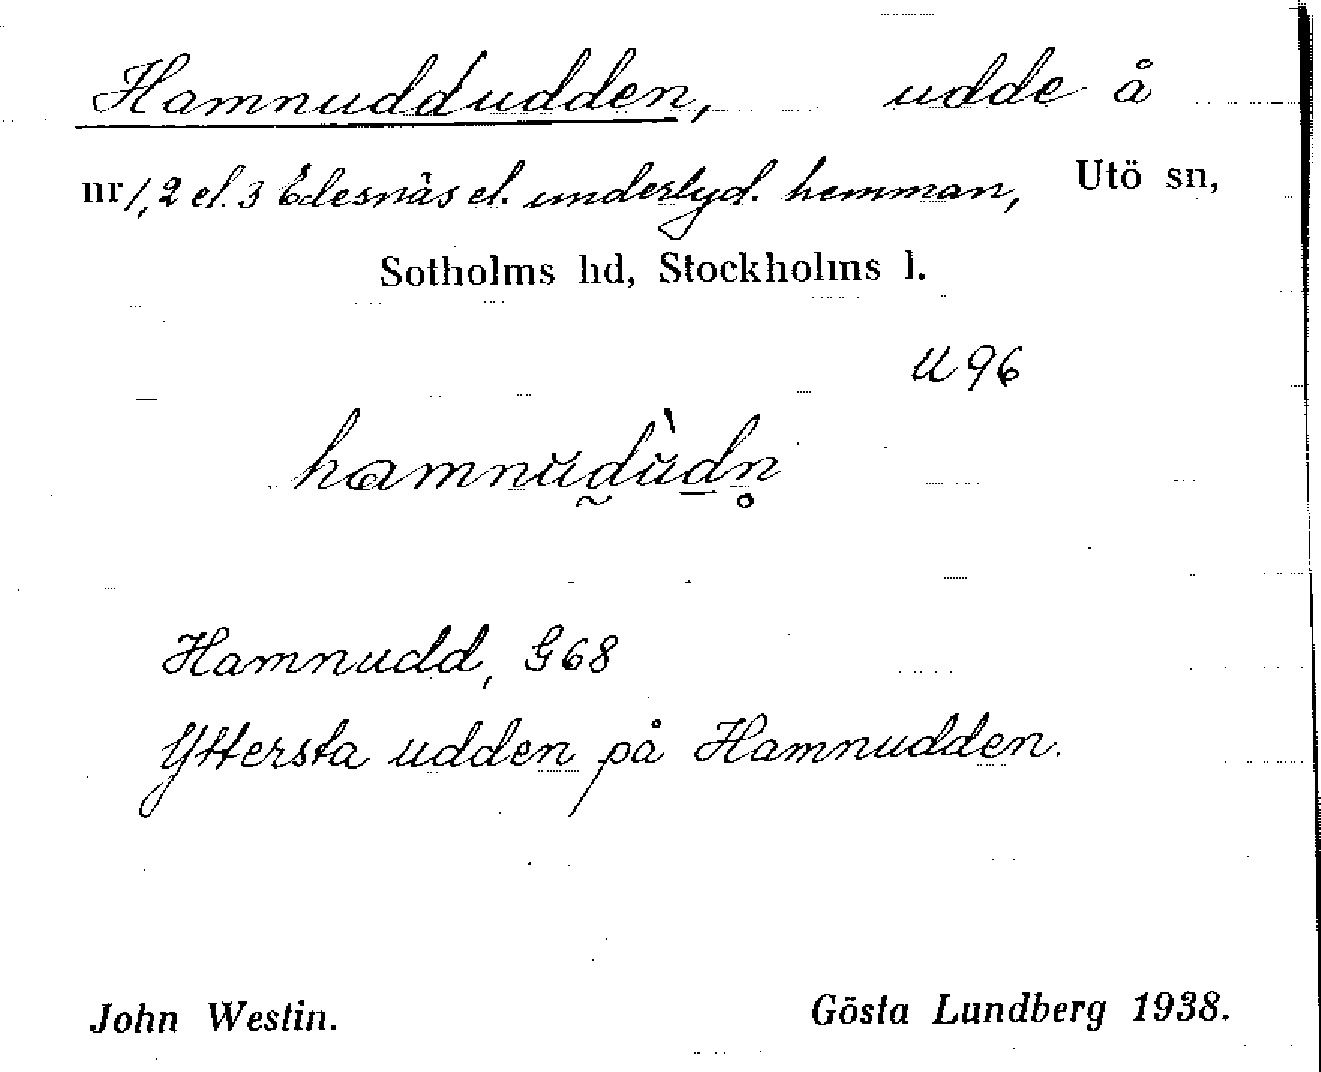 Hamnuddudden, udde å
nr 1, 2 el. 3 Edesnäs el. underlyd. hemman, Utö sn,
Sotholms hd, Stockholms l.
U 96
hamnŭdŭ̀dn̥
Hamnudd, G68
Yttersta udden på Hamnudden.
John Westin. Gösta Lundberg 1938.